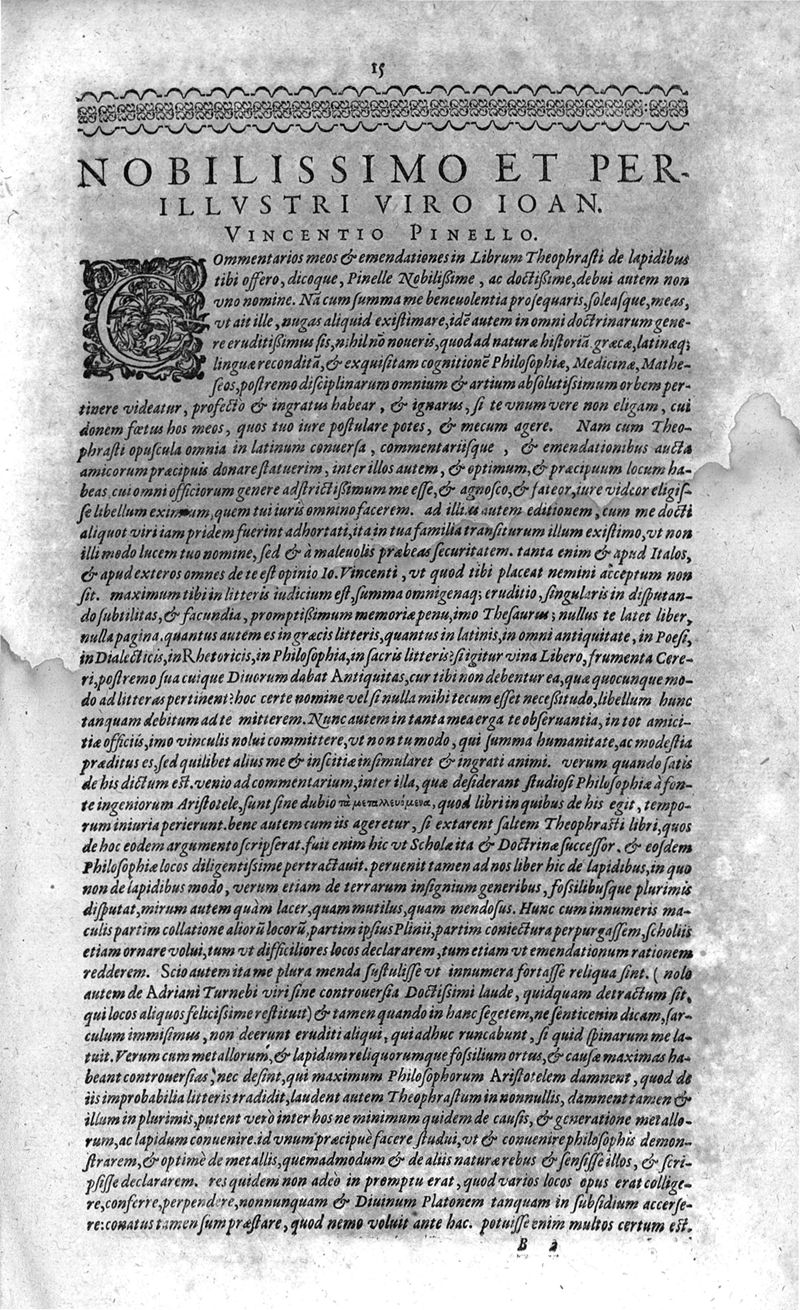 15
NOBILISSIMO ET PER-
ILLVSTRI VIRO IOAN.
VINCENTIO PINELLO.
COmmentarios meos & emendationes in Librum Theophraſti de lapidibus
tibi offero, dicoque, Pinelle Nobilißime, ac doctißime, debui autem non
vno nomine. Nā cum ſumma me beneuolentia proſequaris, ſoleaſque, meas,
vt ait ille, nugas aliquid exiſtimare, idē autem in omni doctrinarum gene-
re eruditißimus ſis, nihil nō noueris, quod ad naturæ hiſtoriā græcæ, latinæq;
linguæ reconditā, & exquiſitam cognitionē Philoſophiæ, Medicinæ, Mathe-
ſeos, poſtremo diſciplinarum omnium & artium abſolutiſſimum orbem per-
tinere videatur, profecto & ingratus habear, & ignarus, ſi te vnum vere non eligam, cui
donem fœtus hos meos, quos tuo iure poſtulare potes, & mecum agere. Nam cum Theo-
phraſti opuſcula omnia in latinum conuerſa, commentariiſque, & emendationibus aucta
amicorum præcipuis donare ſtatuerim, inter illos autem, & optimum, & præcipuum locum ha-
beas, cui omni officiorum genere adſtrictißimum me eſſe, & agnoſco, & fateor, iure videor eligiſ-
ſe libellum eximium, quem tui iuris omnino facerem. ad illius autem editionem, cum me docti
aliquot viri iam pridem fuerint adhortati, ita in tua familia tranſiturum illum exiſtimo, vt non
illi modo lucem tuo nomine, ſed & à maleuolis præbeas ſecuritatem. tanta enim & apud Italos,
& apud exteros omnes de te eſt opinio Io. Vincenti, vt quod tibi placeat nemini acceptum non
ſit. maximum tibi in litteris iudicium eſt, ſumma omnigenaq; eruditio, ſingularis in diſputan-
do ſubtilitas, & facundia, promptißimum memoriæ penu, imo Theſaurus; nullus te latet liber,
nulla pagina. quantus autem es in græcis litteris, quantus in latinis, in omni antiquitate, in Poeſi,
in Dialecticis, in Rhetoricis, in Philoſophia, in ſacris litteris? ſi igitur vina Libero, frumenta Cere-
ri, poſtremo ſua cuique Diuorum dabat Antiquitas, cur tibi non debentur ea, quæ quocunque mo-
do ad litteras pertinent? hoc certe nomine vel ſi nulla mihi tecum eſſet neceßitudo, libellum hunc
tanquam debitum ad te mitterem. Nunc autem in tanta mea erga te obſeruantia, in tot amici-
tiæ officiis, imo vinculis nolui committere, vt non tu modo, qui ſumma humanitate, ac modeſtia
præditus es, ſed quilibet alius me & inſcitiæ inſimularet & ingrati animi. verum quando ſatis
de his dictum eſt. venio ad commentarium, inter illa, quæ deſiderant ſtudioſi Philoſophiæ à fon-
te ingeniorum Ariſtotele, ſunt ſine dubio τὰ μεταλλευόμενα, quod libri in quibus de his egit, tempo-
rum iniuria perierunt. bene autem cum iis ageretur, ſi extarent ſaltem Theophraſti libri, quos
de hoc eodem argumento ſcripſerat. fuit enim hic vt Scholæ ita & Doctrinæ ſucceſſor. & eoſdem
Philoſophiæ locos diligentiſſime pertractauit. peruenit tamen ad nos liber hic de lapidibus, in quo
non de lapidibus modo, verum etiam de terrarum inſignium generibus, foſſilibuſque plurimis
diſputat, mirum autem quàm lacer, quam mutilus, quam mendoſus. Hunc cum innumeris ma-
culis partim collatione aliorū locorū, partim ipſius Plinii, partim coniectura perpurgaſſem, ſcholiis
etiam ornare volui, tum vt difficiliores locos declararem, tum etiam vt emendationum rationem
redderem. Scio autem ita me plura menda ſuſtuliſſe vt innumera fortaſſe reliqua ſint. ( nolo
autem de Adriani Turnebi viri ſine controuerſia Doctiſſimi laude, quidquam detractum ſit,
qui locos aliquos feliciſſime reſtituit) & tamen quando in hanc ſegetem, ne ſenticen in dicam, ſar-
culum immiſimus, non deerunt eruditi aliqui, qui adhuc runcabunt, ſi quid ſpinarum me la-
tuit. Verum cum metallorum, & lapidum reliquorumque foſſilium ortus, & cauſæ maximas ha-
beant controuerſias, nec deſint, qui maximum Philoſophorum Ariſtotelem damnent, quod de
iis improbabilia litteris tradidit, laudent autem Theophraſtum in nonnullis, damnent tamen &
illum in plurimis, putent verò inter hos ne minimum quidem de cauſis, & generatione metallo-
rum, ac lapidum conuenire. id vnum præcipuè facere ſtudui, vt & conuenire philoſophis demon-
ſtrarem, & optimè de metallis, quemadmodum & de aliis naturæ rebus & ſenſiſſe illos, & ſcri-
pſiſſe declararem. res quidem non adeò in promptu erat, quod varios locos opus erat collige-
re, conferre, perpendere, nonnunquam & Diuinum Platonem tanquam in ſubſidium accerſe-
re: conatus tamen ſum præſtare, quod nemo voluit ante hac. potuiſſe enim multos certum eſt.
B 2